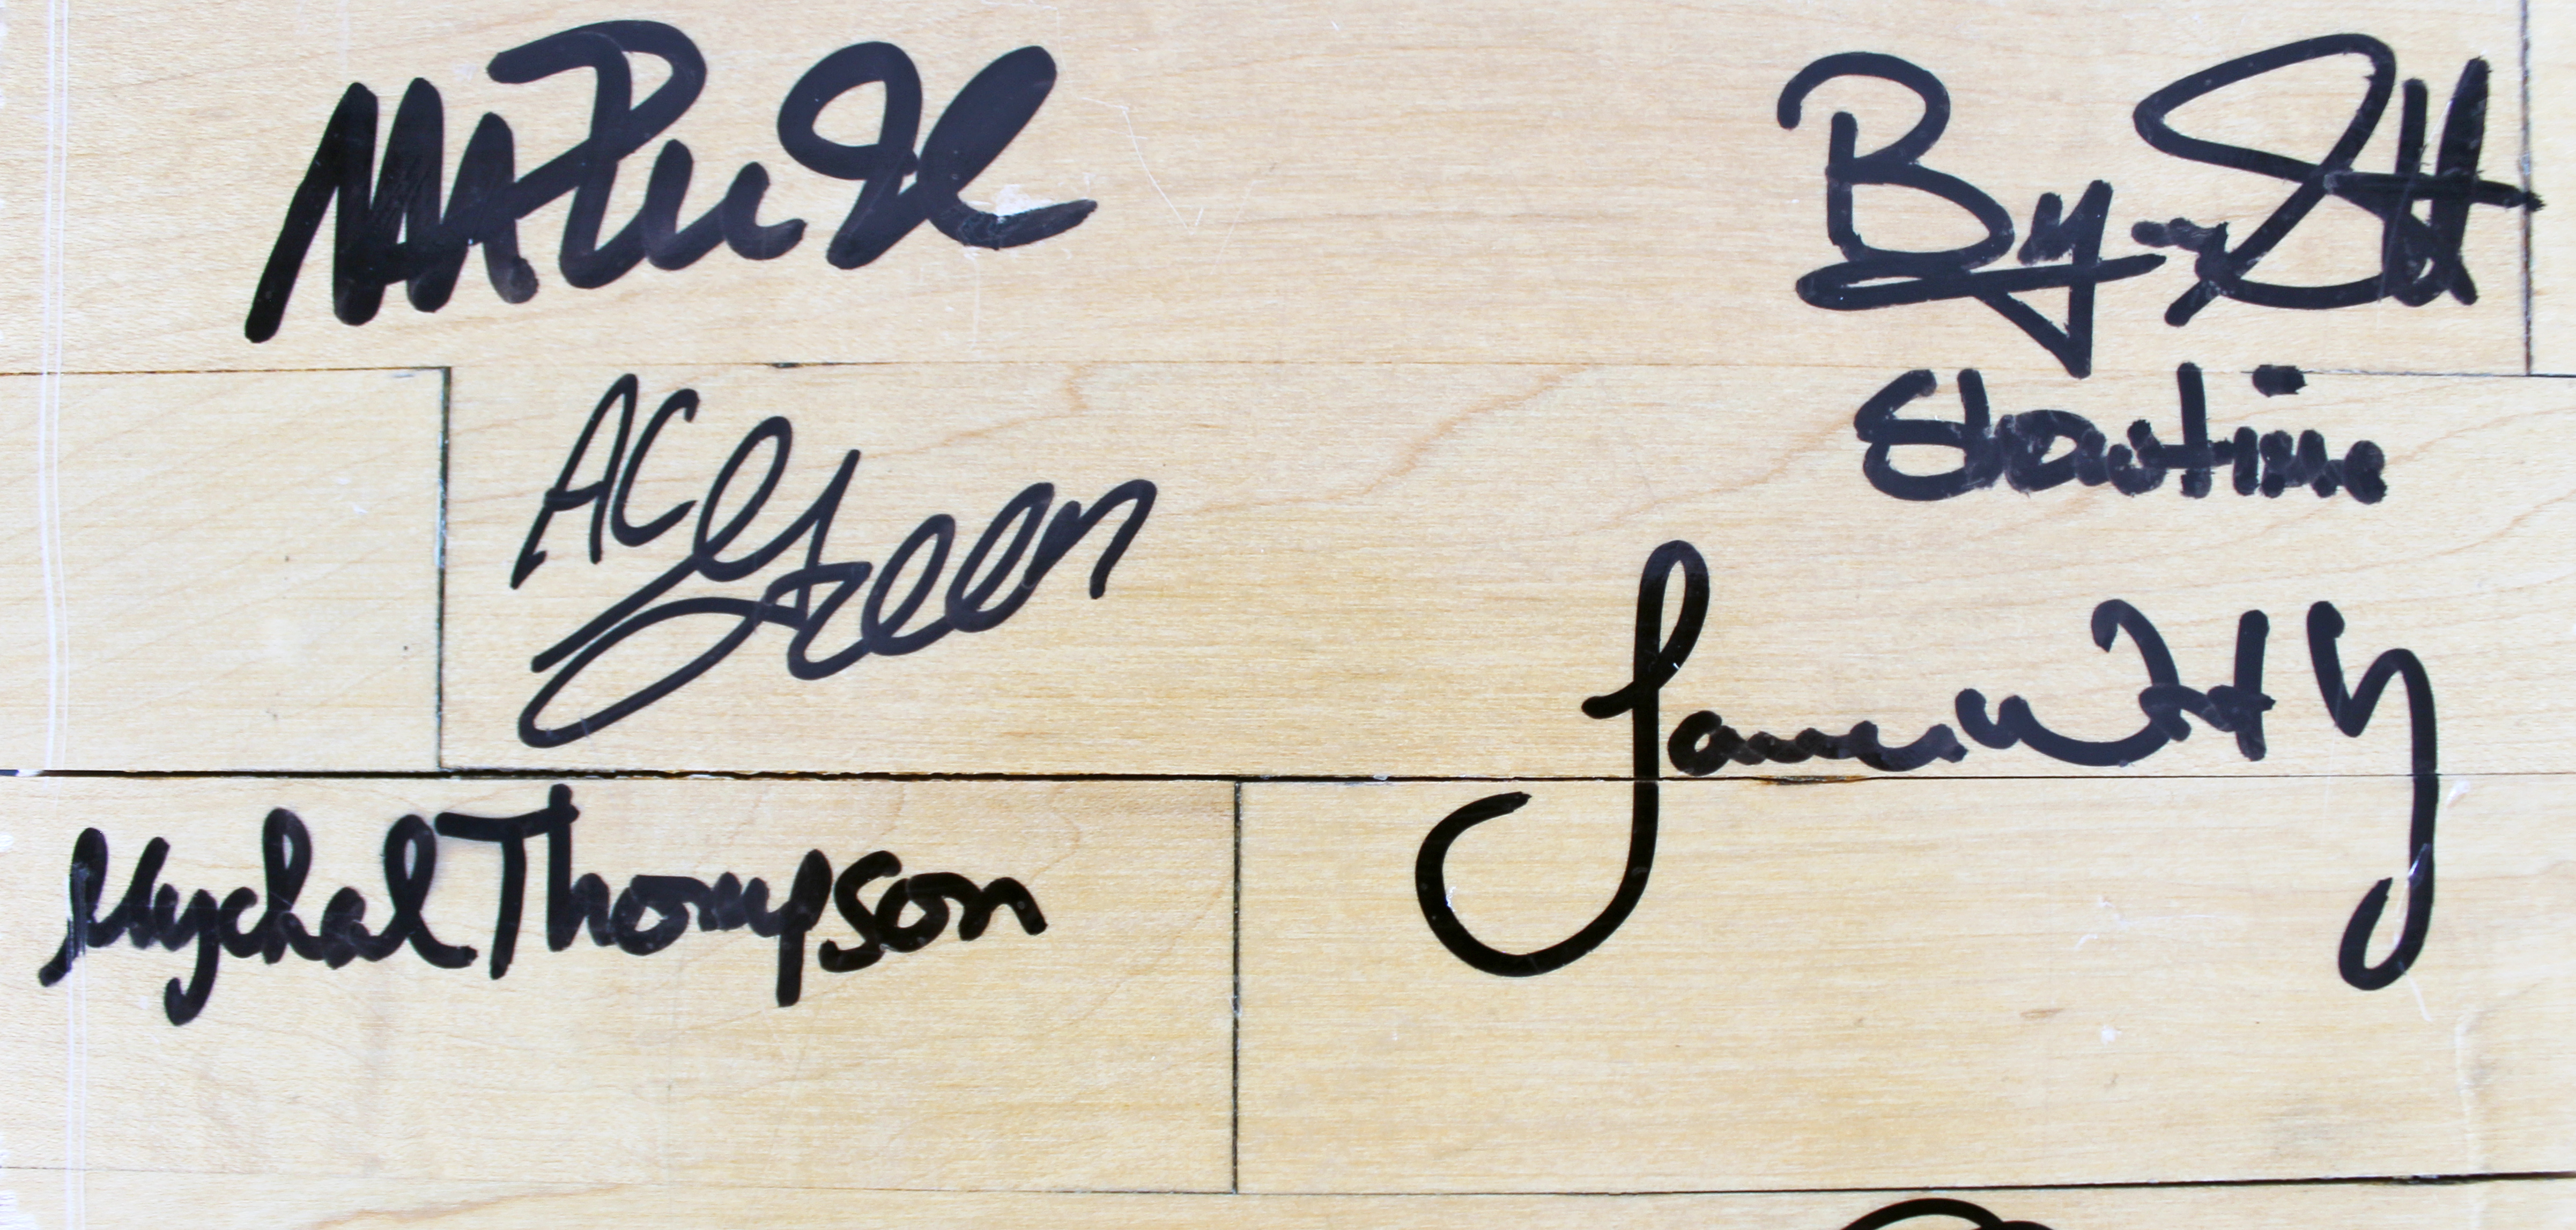 Byron Scott
Showtime
AC Green
James Worthy
Mychal Thompson